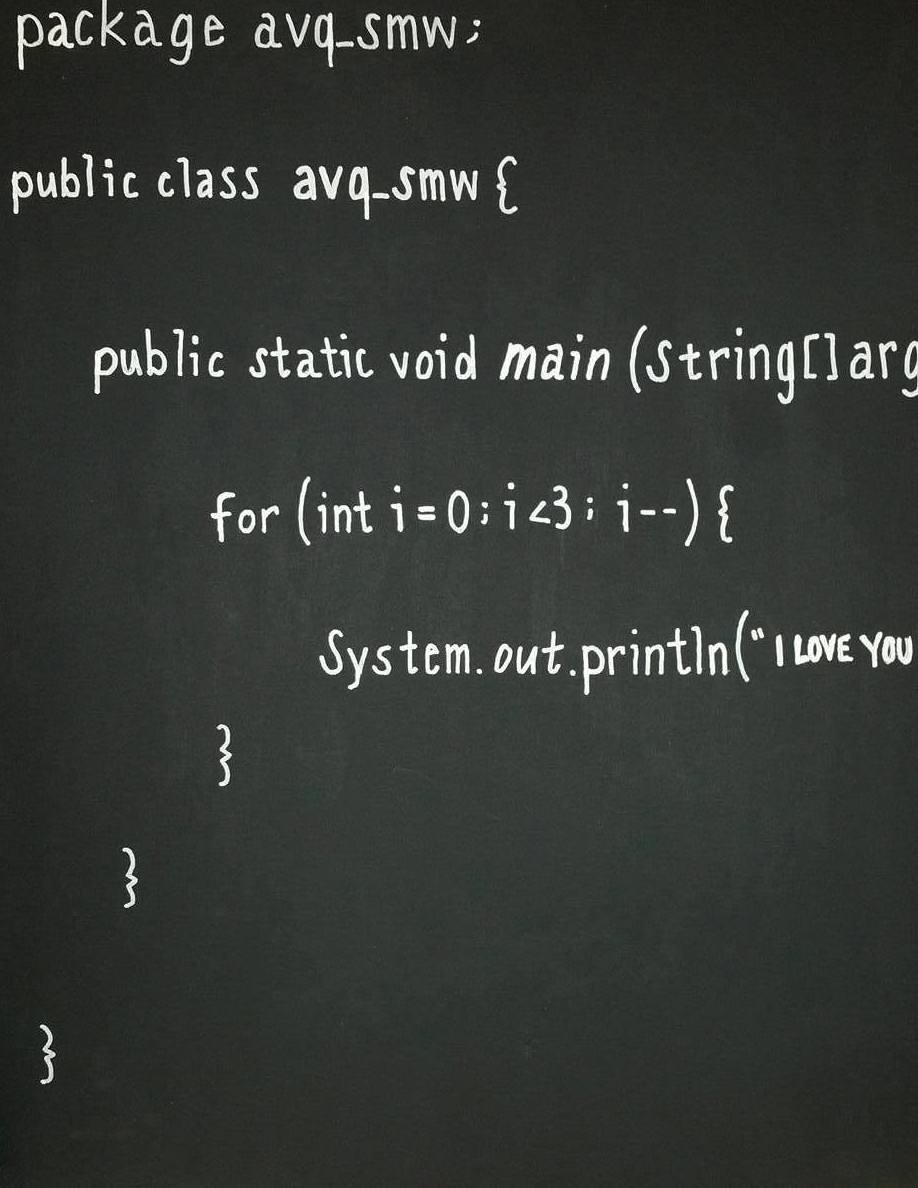 package avq_smw;
public class avq_smw {
public static void main (String[] arg
for (int i=0; i<3; i--) {
System.out.println("I LOVE YOU
}
}
}